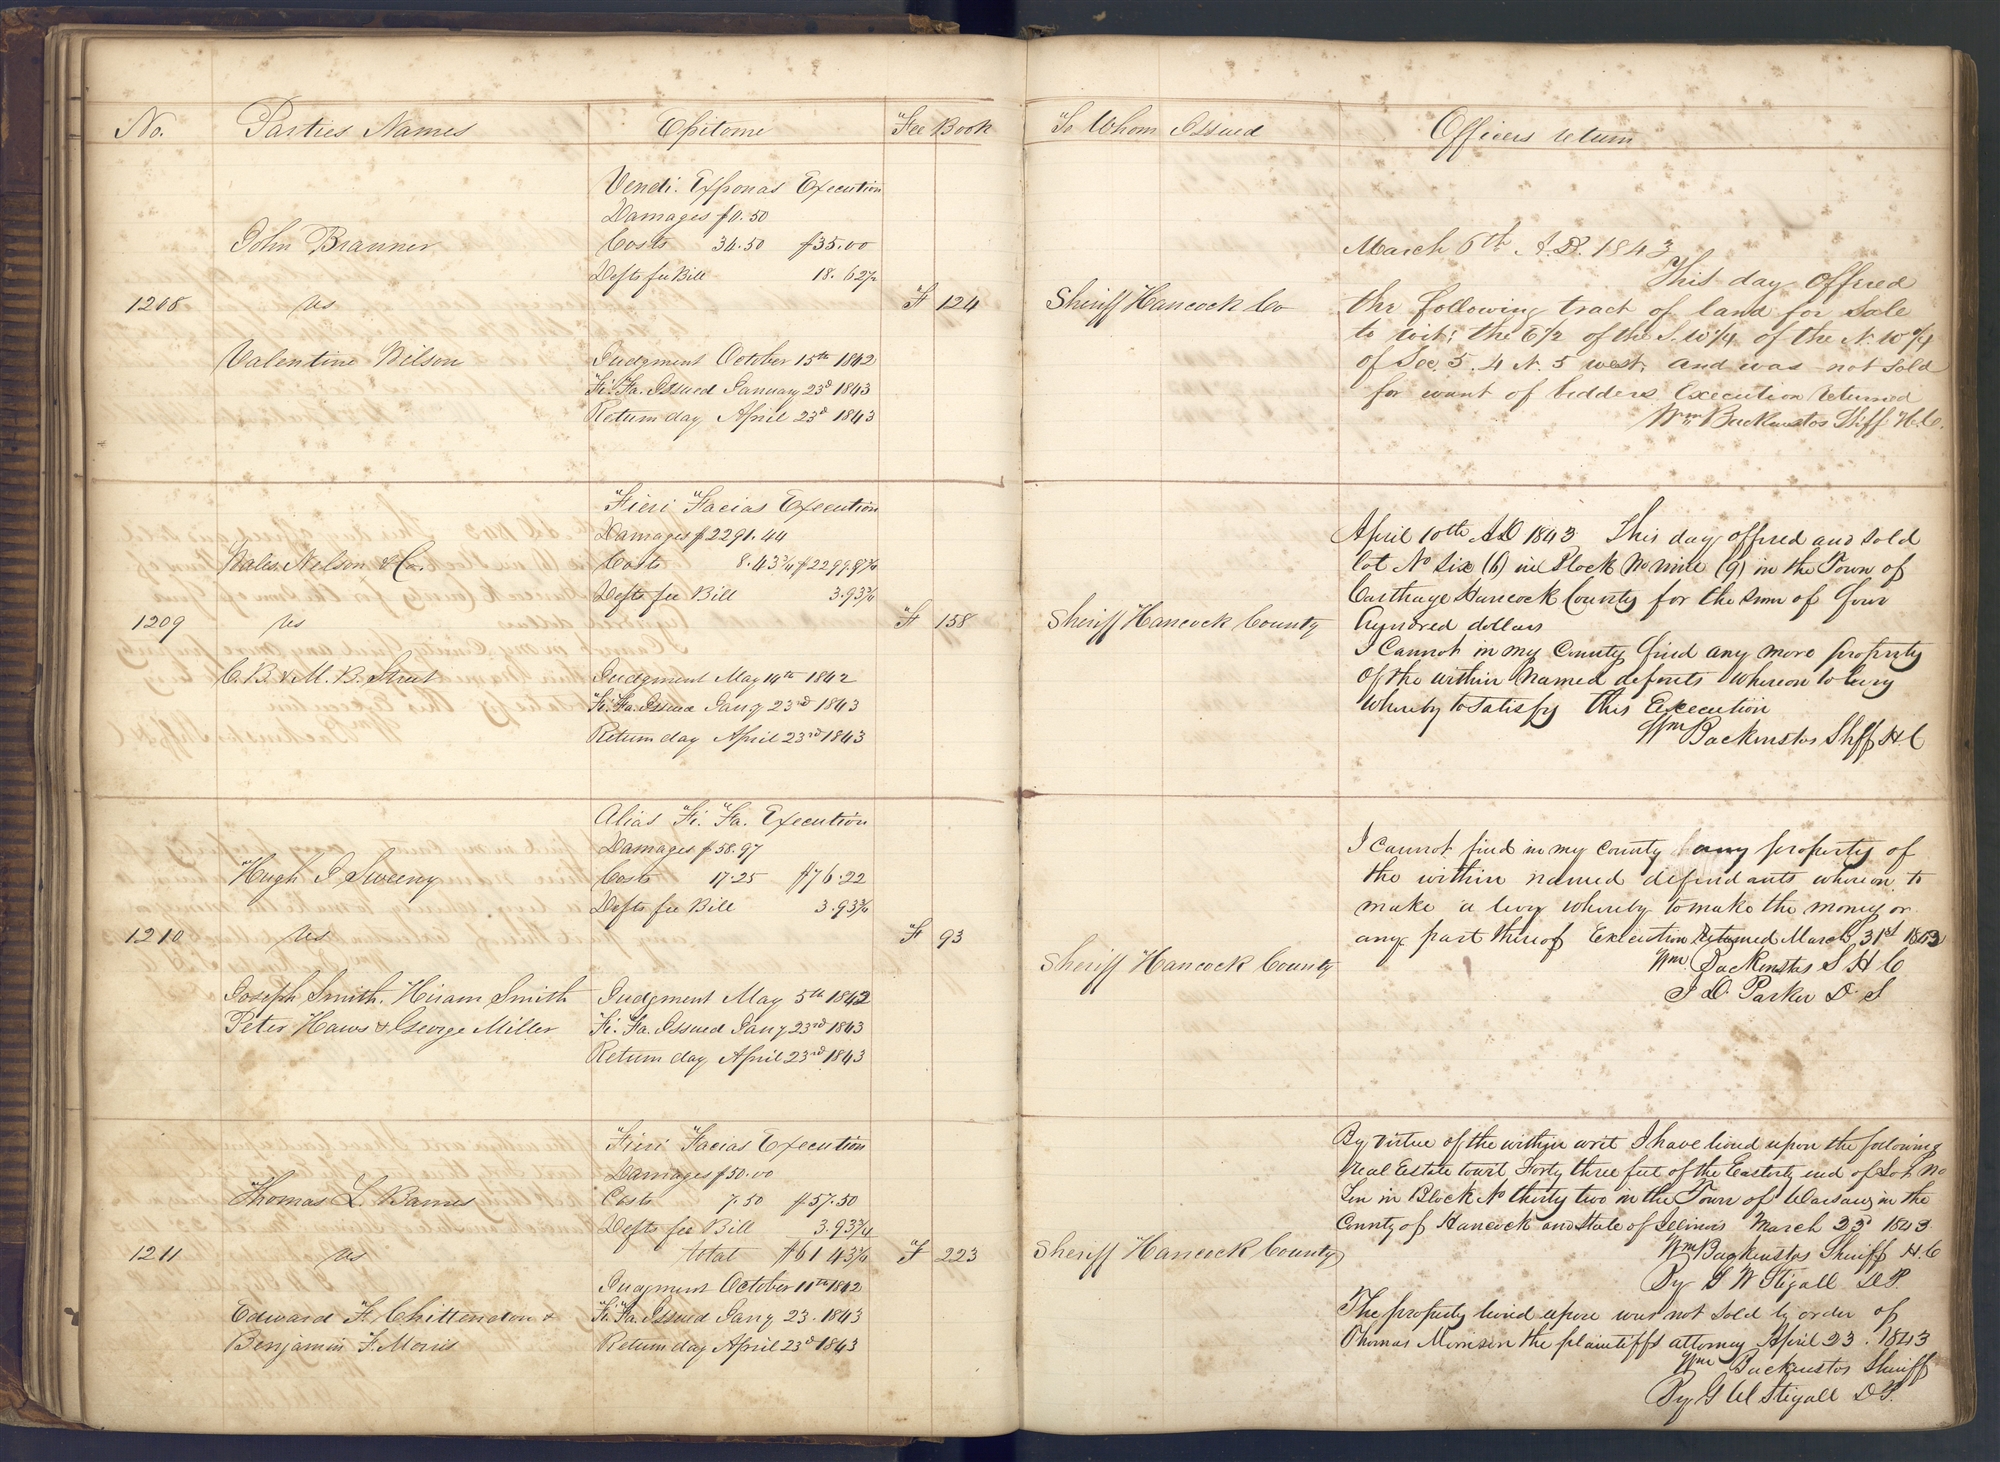 No. Parties Names Epitome Fee Book
Vendi. Exponas Execution
Damages $0.50
John Branner
Costs 34.50 $35.00
Defts fee Bill 18.62½
1208 vs F 124
Valentine Wilson
Judgment October 15th 1842
Fi. Fa. Issued January 23d 1843
Return day April 23d 1843
Fieri Facias Execution
Damages $2291.44
Wales Nelson & Co.
Costs 8.43¾ $2299.87¾
Defts fee Bill 3.93¾
1209 vs F 158
C. B. & M. B. Street
Judgment May 14th 1842
Fi. Fa. Issued Jany 23rd 1843
Return day April 23rd 1843
Alias Fi. Fa. Execution
Damages $58.97
Hugh I Sweeny
Costs 17.25 $76.22
Defts fee Bill 3.93¾
1210 vs F 93
Joseph Smith, Hiram Smith
Peter Haws & George Miller
Judgment May 5th 1842
Fi. Fa. Issued Jany 23rd 1843
Return day April 23rd 1843
Fieri Facias Execution
Damages $50.00
Thomas L. Barnes
Costs 7.50 $57.50
Defts fee Bill 3.93¾
1211 vs total $61 43¾ F 223
Judgment October 11th 1842
Edward F. Chittendon &
Benjamin F. Morris
Fi. Fa. Issued Jany 23. 1843
Return day April 23d 1843
To Whom Issued Officers return
March 6th A.D. 1843
This day Offered
Sheriff Hancock Co
the following tract of land for sale
to wit: the E½ of the S.W¼ of the N. W¼
of Sec. 5. 4 N. 5 west, and was not sold
for want of bidders Execution returned
Wm Backenstos Shiff H.C.
April 10th AD 1843 This day offered and sold
lot No six (6) in Block No nine (9) in the Town of
Carthage Hancock County for the sum of four
Sheriff Hancock County
hundred dollars
I Cannot in my County find any more property
of the within named defents whereon to levy
whereby to satisfy this Execution
Wm Backenstos Shff H. C
I cannot find in my county any property of
the within named defendants whereon to
make a levy whereby to make the money or
any part thereof Execution Returned March 31st 1843
Sheriff Hancock County
Wm Backenstos S H C
J D. Parker D. S
By virtue of the within writ I have levied upon the following
real Estate towit Forty three feet of the Easterly end of Lot No
Ten in Block No thirty two in the Town of Warsaw in the
County of Hancock and State of Illinois March 23d 1843
Sheriff Hancock County
Wm Backenstos Sheriff H. C
By G W Stigall D.S.
The property levied upon was not sold by order of
Thomas Morrison the plaintiffs attorney April 23. 1843
Wm Backenstos Sheriff
By G W Stigall D S.